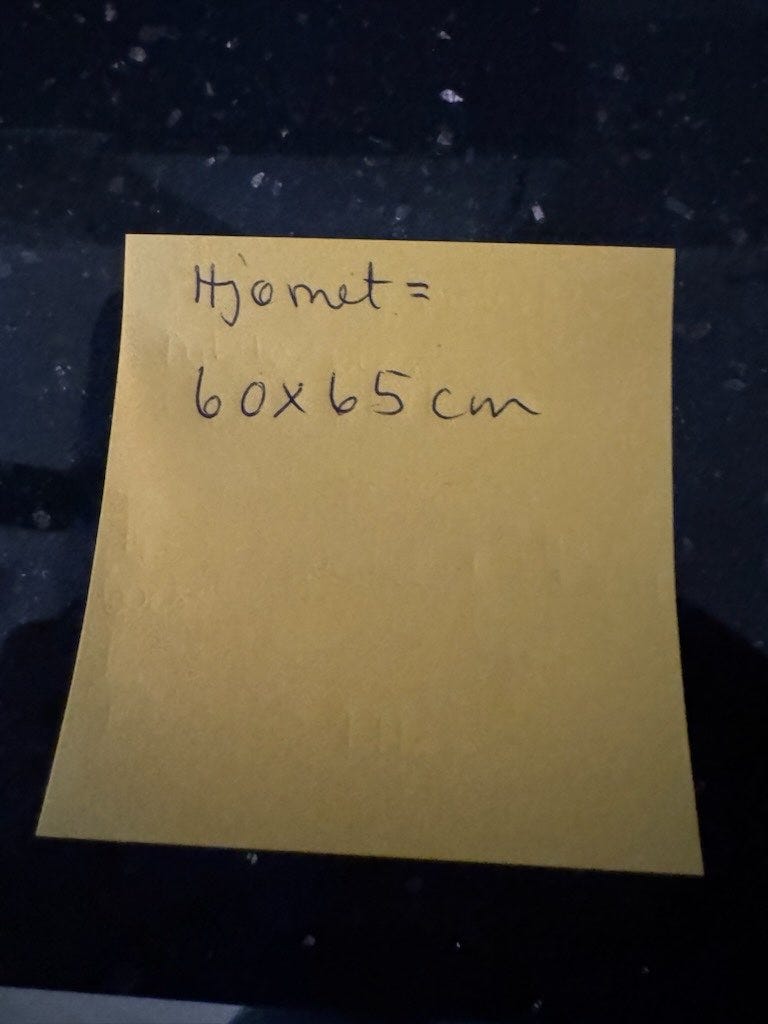 Hjørnet =
60x65 cm